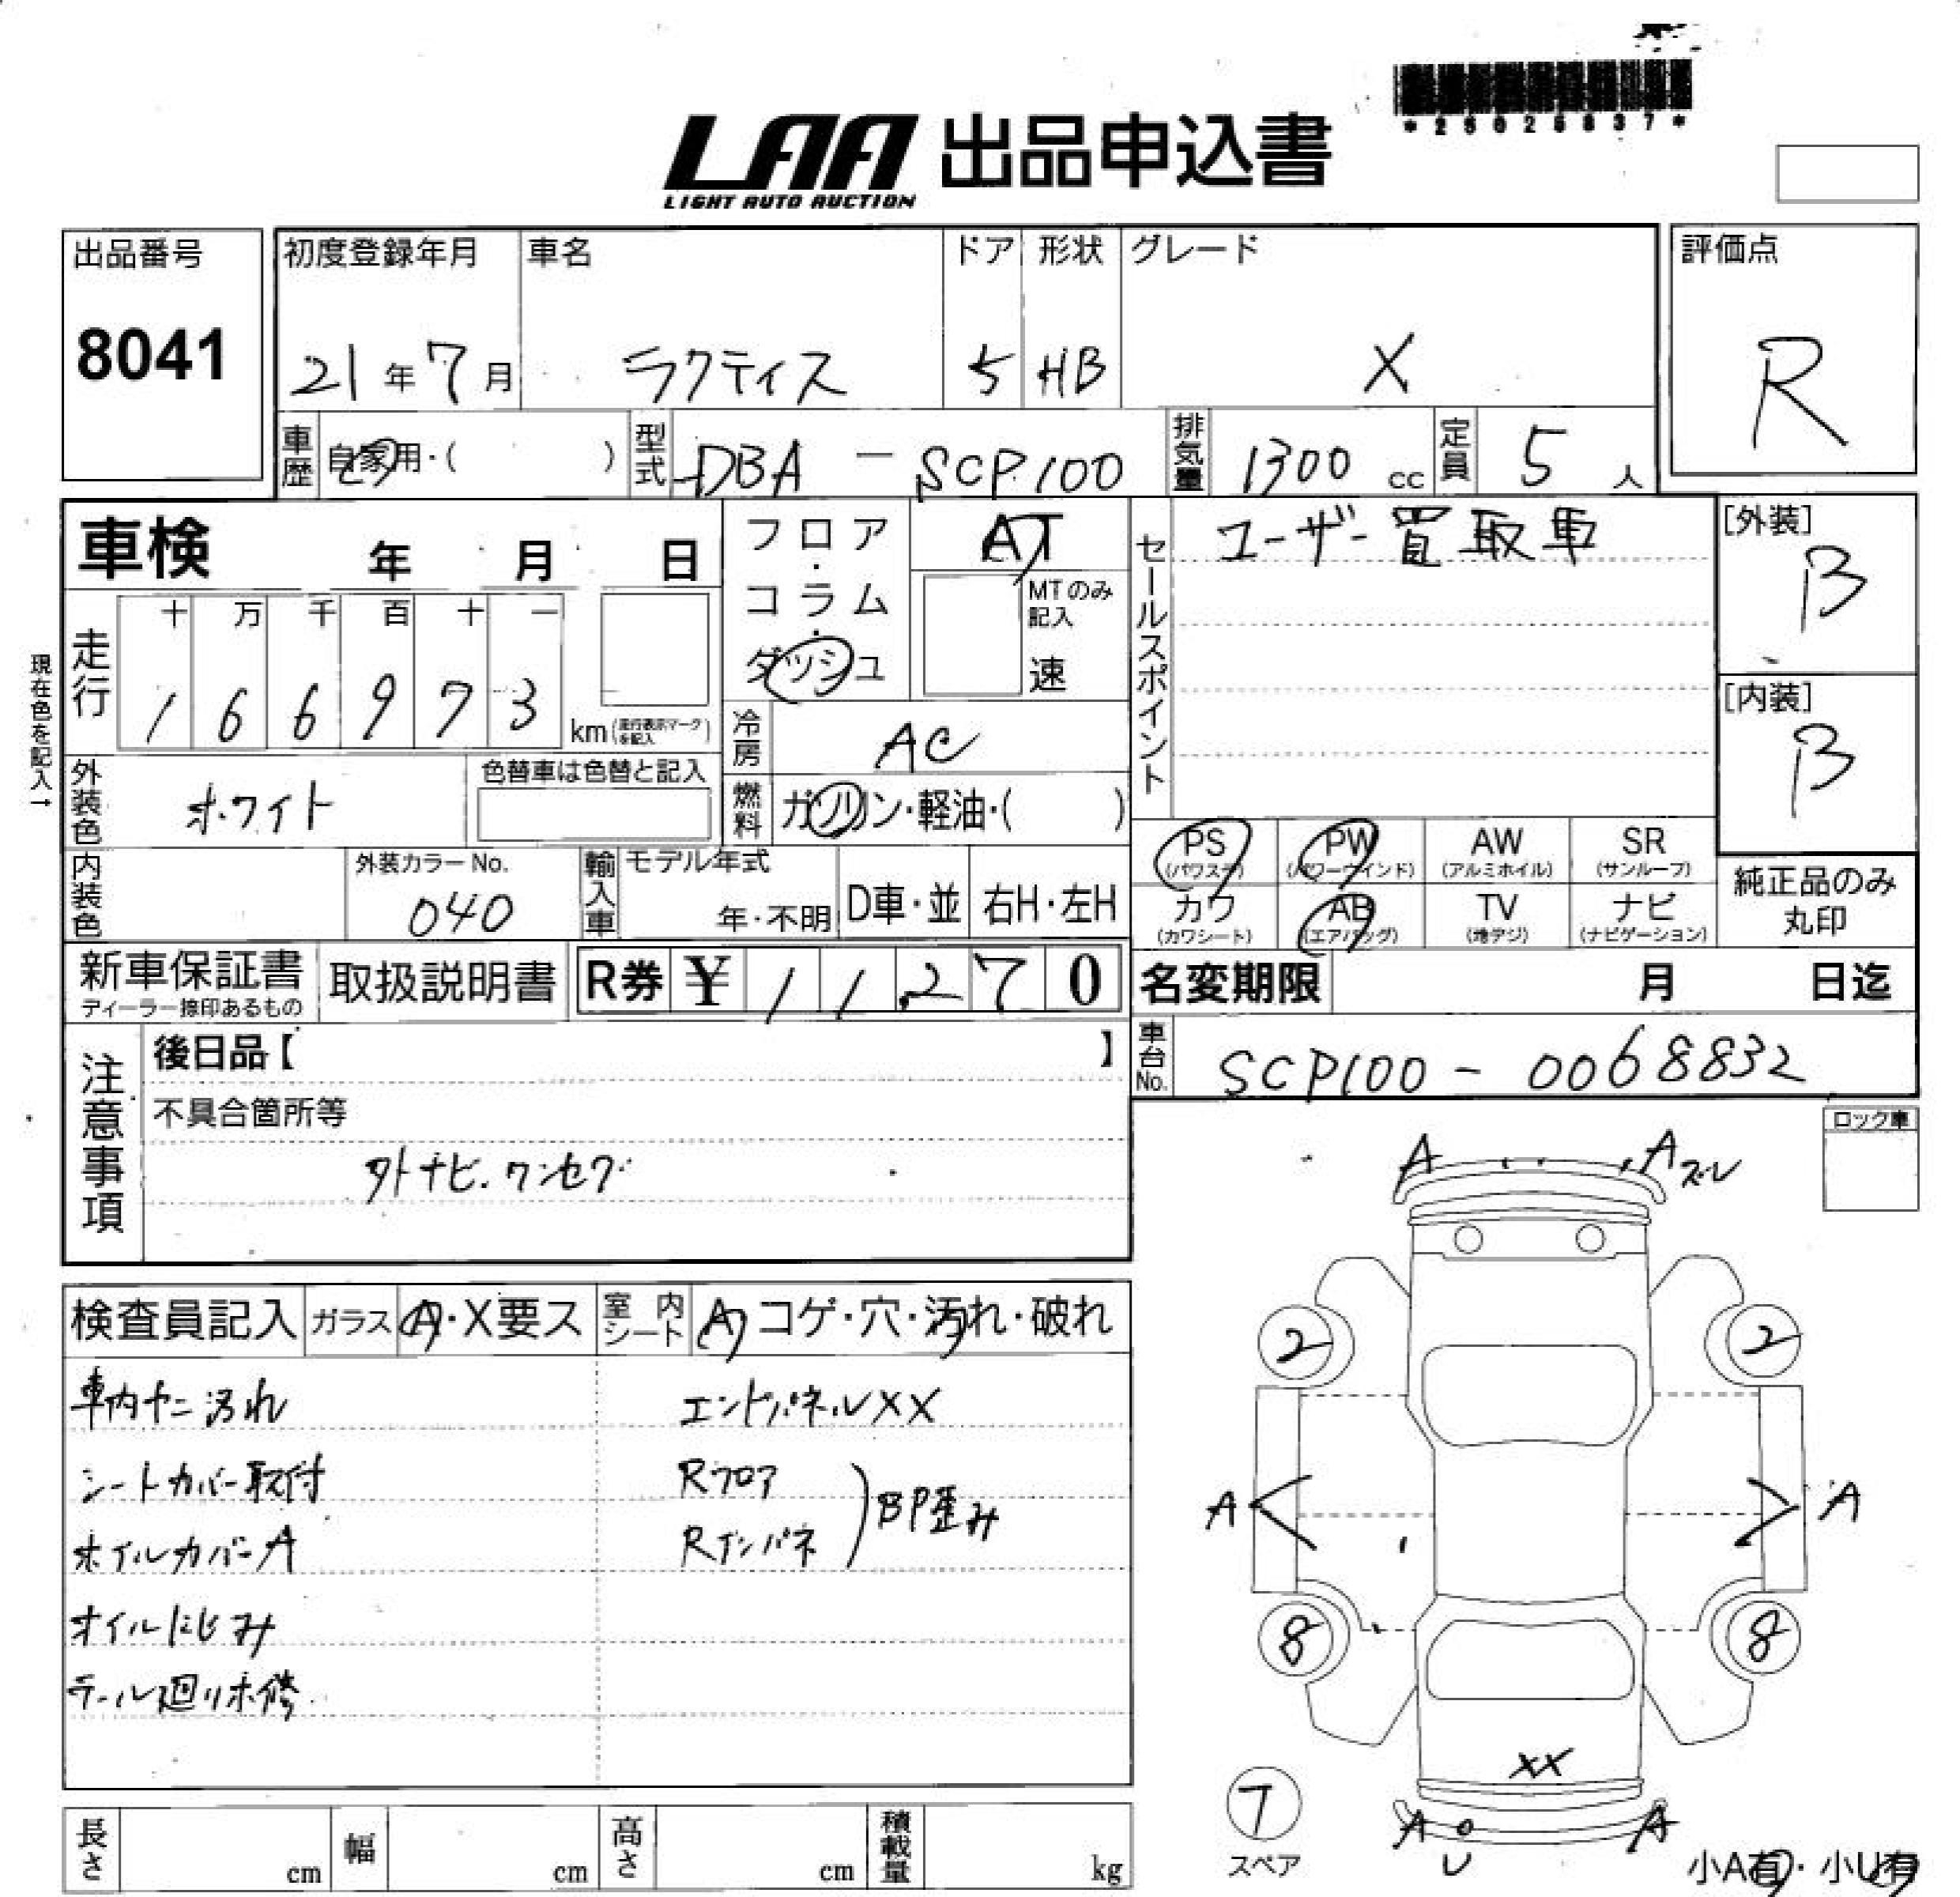 *25025837*
LAA 出品申込書
LIGHT AUTO AUCTION
出品番号 初度登録年月 車名 ドア 形状 グレード 評価点
8041 21年7月 ラクティス 5 HB X R
車歴 自家用・( ) 型式 DBA - SCP100 排気量 1300 cc 定員 5 人
車検 年 月 日
フロア・コラム・ダッシュ
AT
MTのみ記入
速
セールスポイント
ユーザー買取車
[外装]
B
[内装]
B
現在色を記入→
走行 十 万 千 百 十 一
1 6 6 9 7 3 km (走行表示マークを記入)
冷房 AC
外装色 ホワイト 色替車は色替と記入
燃料 ガソリン・軽油・( )
内装色 外装カラーNo. 040
輸入車 モデル年式 年・不明 D車・並 右H・左H
PS (パワステ) PW (パワーウインド) AW (アルミホイル) SR (サンルーフ)
カワ (カワシート) AB (エアバッグ) TV (地デジ) ナビ (ナビゲーション)
純正品のみ
丸印
新車保証書 ディーラー捺印あるもの 取扱説明書 R券 ¥ 11,270
名変期限 月 日迄
注意事項
後日品【 】
車台No. SCP100 - 0068832
不具合箇所等
外ナビ.ワンセグ
ロック車
A A ズレ
検査員記入 ガラス A・X要ス 室内シート A コゲ・穴・汚れ・破れ
車内ヤニ汚れ エンドパネルXX
シートカバー取付 Rフロア
ホイルカバーA Rインパネ
BP歪み
オイルにじみ
テール廻り补修
2 2
A A
8 8
XX
7
スペア
A U A
小A有・小U有
長さ cm 幅 cm 高さ cm 積載量 kg